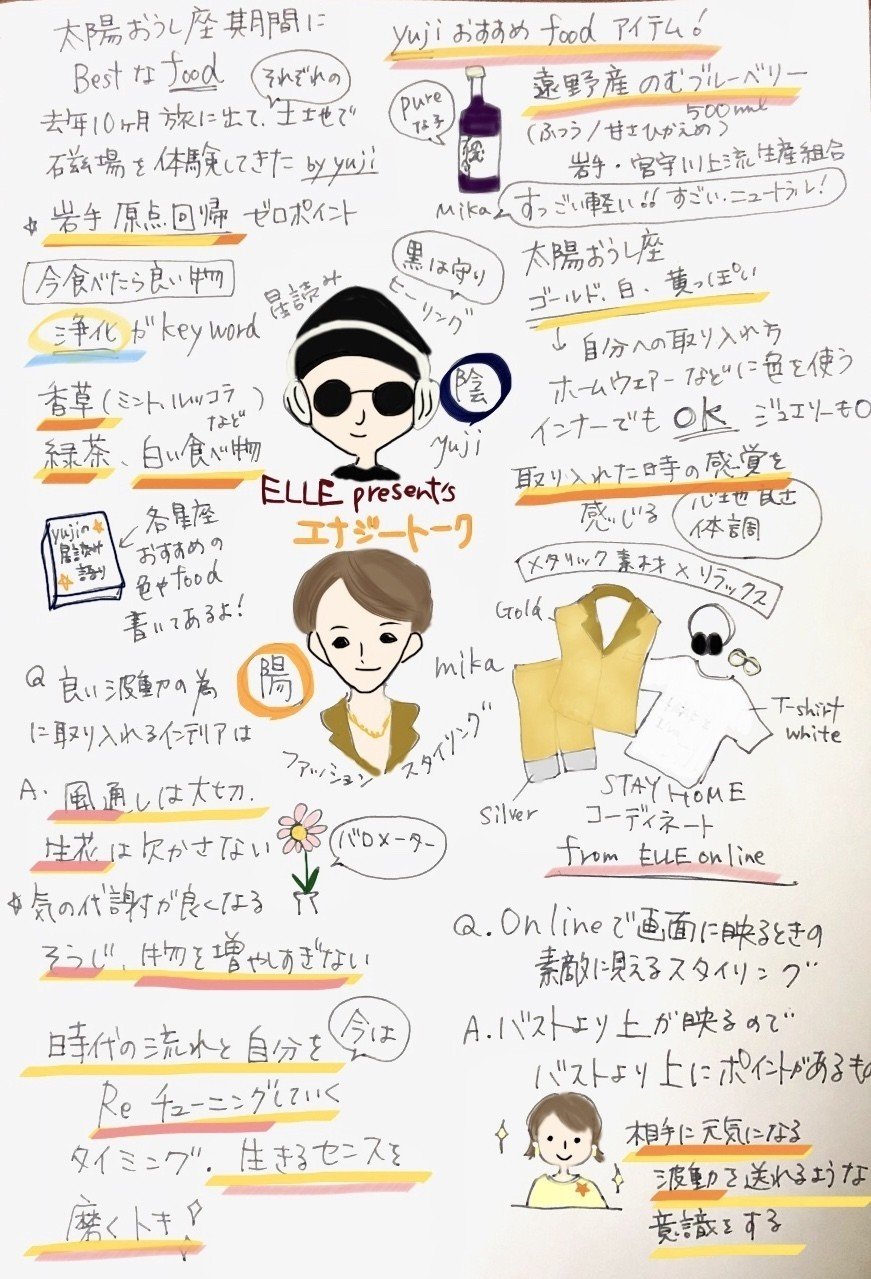 太陽おうし座期間に
Bestなfood
それぞれの
去年10ヶ月旅に出て、土地で
磁場を体験してきた by yuji
☆岩手 原点回帰 ゼロポイント
今食べたら良い物
浄化がkeyword
香草(ミント、ルッコラなど)
緑茶、白い食べ物
yujiの
星読み
語り
各星座
おすすめの
色やfood
書いてあるよ!
Q 良い波動の為
に取り入れるインテリアは
A. 風通しは大切.
生花は欠かさない
バロメーター
☆気の代謝が良くなる
そうじ、物を増やしすぎない
時代の流れと自分を
今は
Re チューニングしていく
タイミング.生きるセンスを
磨くトキ!
星読み
黒は守り
ヒーリング
陰
yuji
ELLE present's
エナジートーク
陽
mika
ファッションスタイリング
yuji おすすめ food アイテム!
pureなる
遠野産のむブルーベリー
500ml
(ふつう/甘さひかえめ)
岩手・宮守川上流生産組合
mika
すっごい軽い!!すごい、ニュートラル!
太陽おうし座
ゴールド、白、黄っぽい
↓自分への取り入れ方
ホームウェアーなどに色を使う
インナーでもOK ジュエリーもO
取り入れた時の感覚を
感じる
心地良さ
体調
メタリック素材×リラックス
Gold
T-shirt
white
silver
STAY HOME
コーディネート
from ELLE online
Q. Onlineで画面に映るときの
素敵に見えるスタイリング
A. バストより上が映るので
バストより上にポイントがあるも
相手に元気になる
波動を送れるような
意識をする